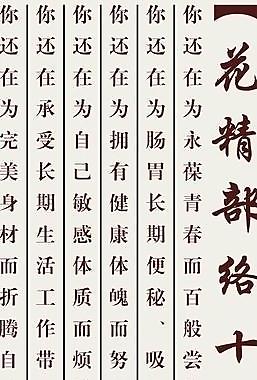 花精部络十
你还在为永葆青春而百般尝
你还在为肠胃长期便秘、吸
你还在为拥有健康体魄而努
你还在为自己敏感体质而烦
你还在承受长期生活工作带
你还在为完美身材而折腾自